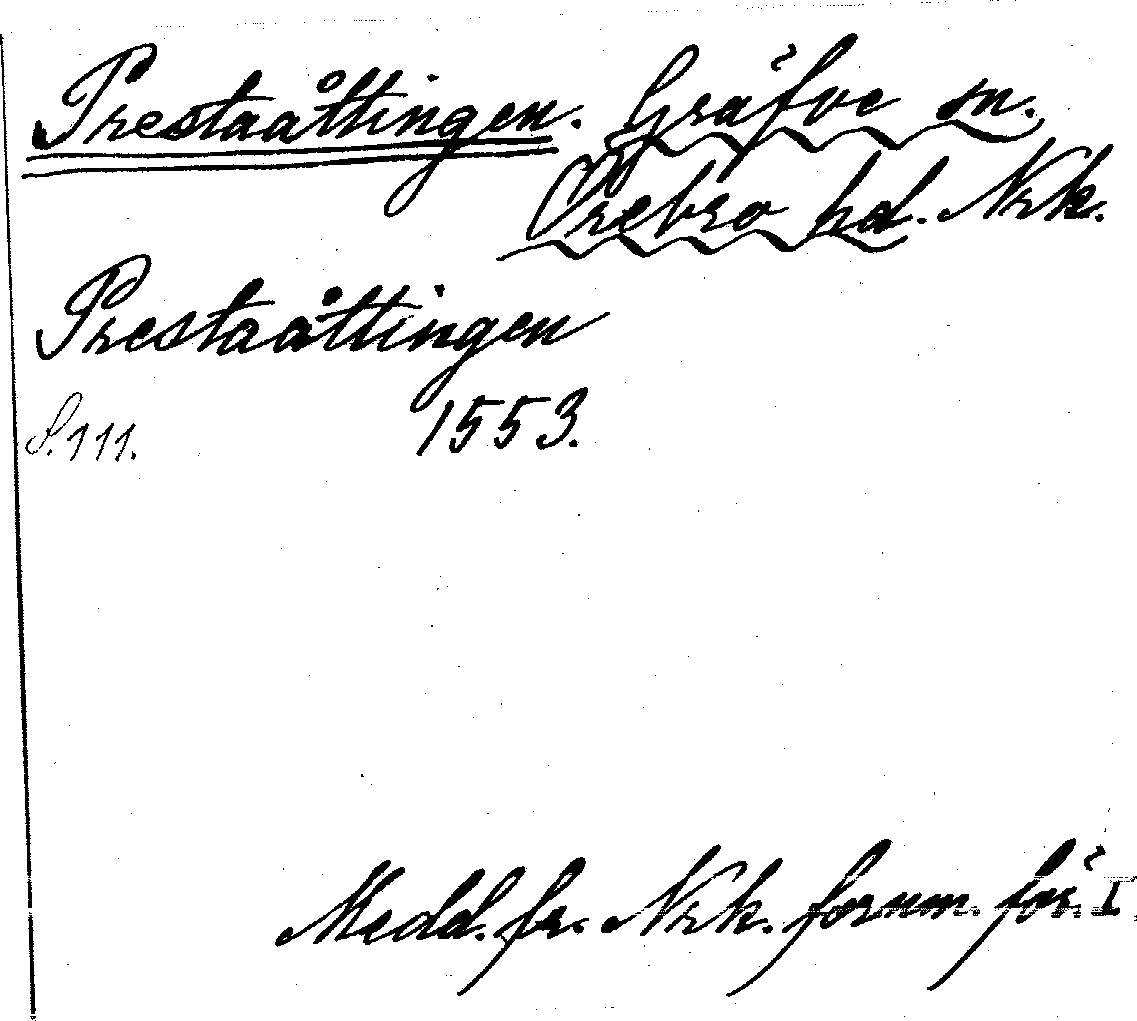 Prestaåttingen. Gräfve sn.
Örebro hd. Nrk.
Prestaåttingen
S. 111. 1553.
Medd. fr. Nrk. fornm. för. I